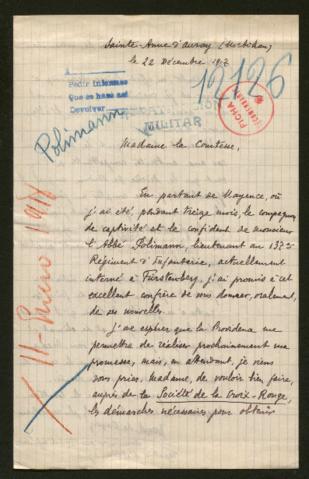 Sainte-Anne d'Auray (Morbihan)
le 22 Décembre 1917
12126
A
Pedir informes
Que se hans ael
Devolver
FICHA
MILITAR
Polimann
Madame la Comtesse,
11-Enero 1918
En partant de Mayence, où
j'ai été, pendant treize mois, le compagnon
de captivité et le confident de monsieur
l'Abbé Polimann, lieutenant au 137e
Régiment d'Infanterie, actuellement
interné à Fürstenberg, j'ai promis à cet
excellent confrère de vous donner, oralement,
de ses nouvelles.
J'ose espérer que la Providence me
permettra de réaliser prochainement ma
promesse, mais, en attendant, je viens
vous prier, Madame, de vouloir bien faire,
auprès de la Société de la Croix-Rouge,
les démarches nécessaires pour obtenir